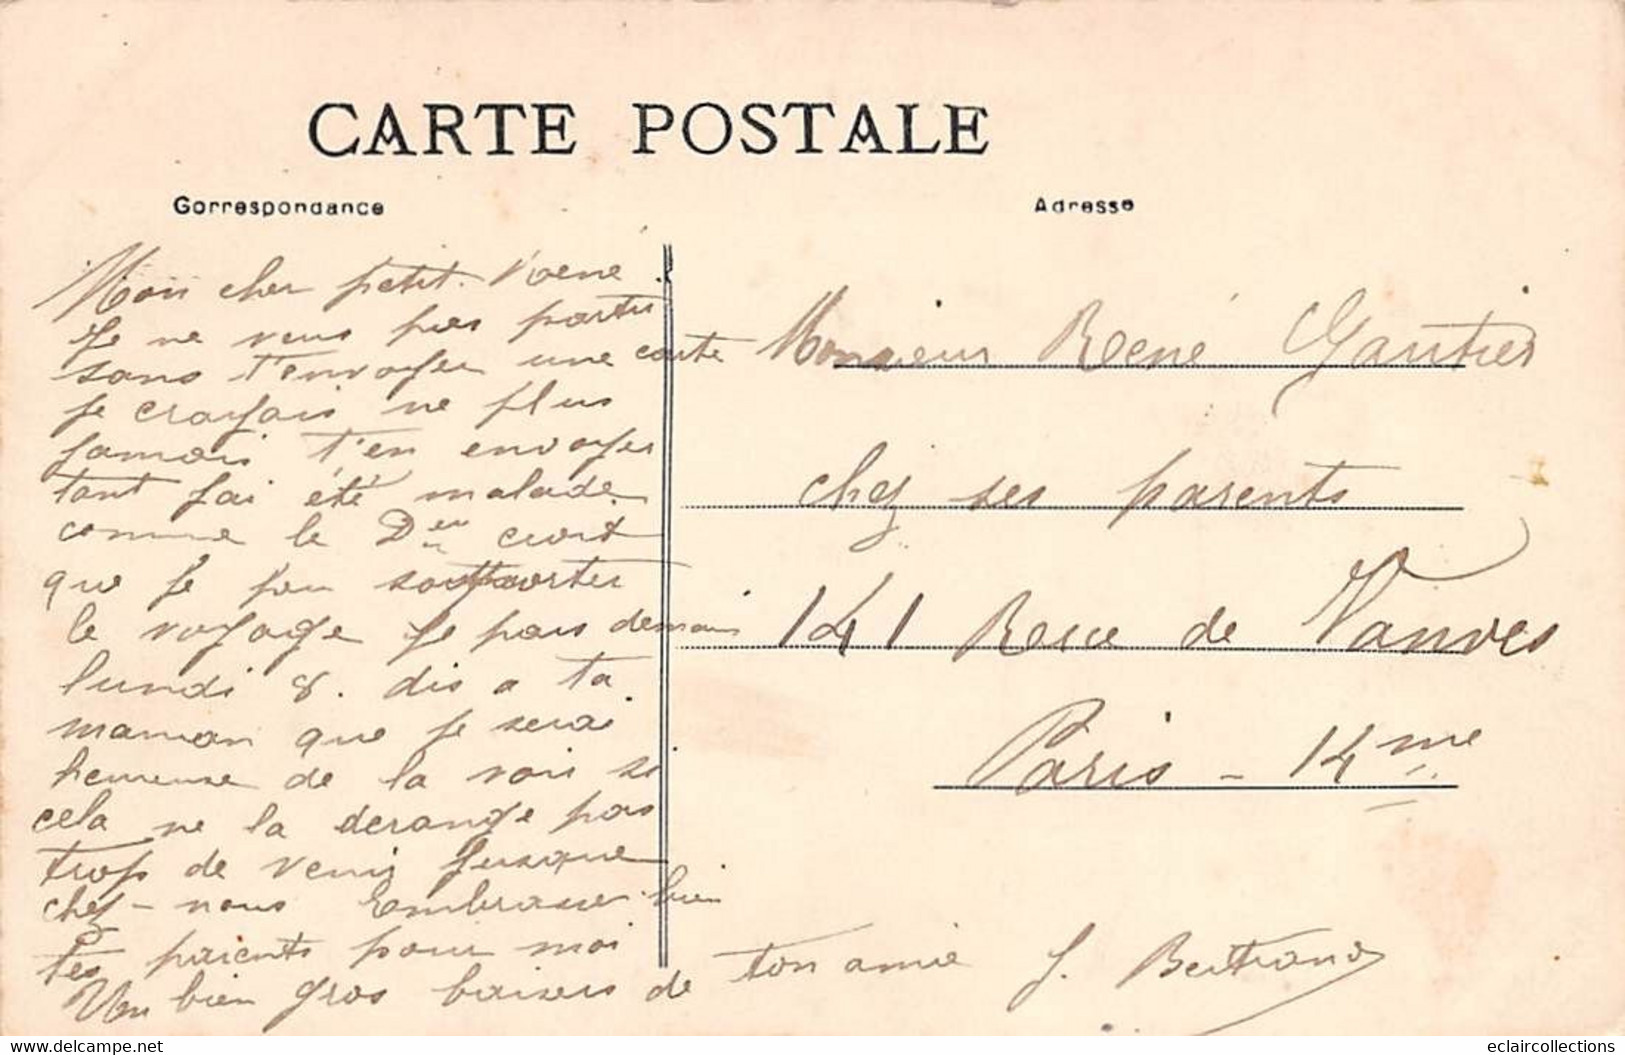 CARTE POSTALE
Correspondance
Adresse
Mon cher petit René
Je ne veus pas partir
sans t'envoyer une carte
je croyais ne plus
jamais t'en envoyer
tant j'ai été malade
comme le D croit
que je peu supporter
le voyage je pars demain
lundi 8. dis a ta
maman que je serai
heureuse de la voir si
cela ne la derange pas
trop de venir jusque
chez-nous Embrasse bien
tes parents pour moi
Un bien gros baisers de ton amie J. Bertrand
Monsieur René Gautier
chez ses parents
141 Rue de Vanves
Paris - 14me
delcampe.net
eclaircollections